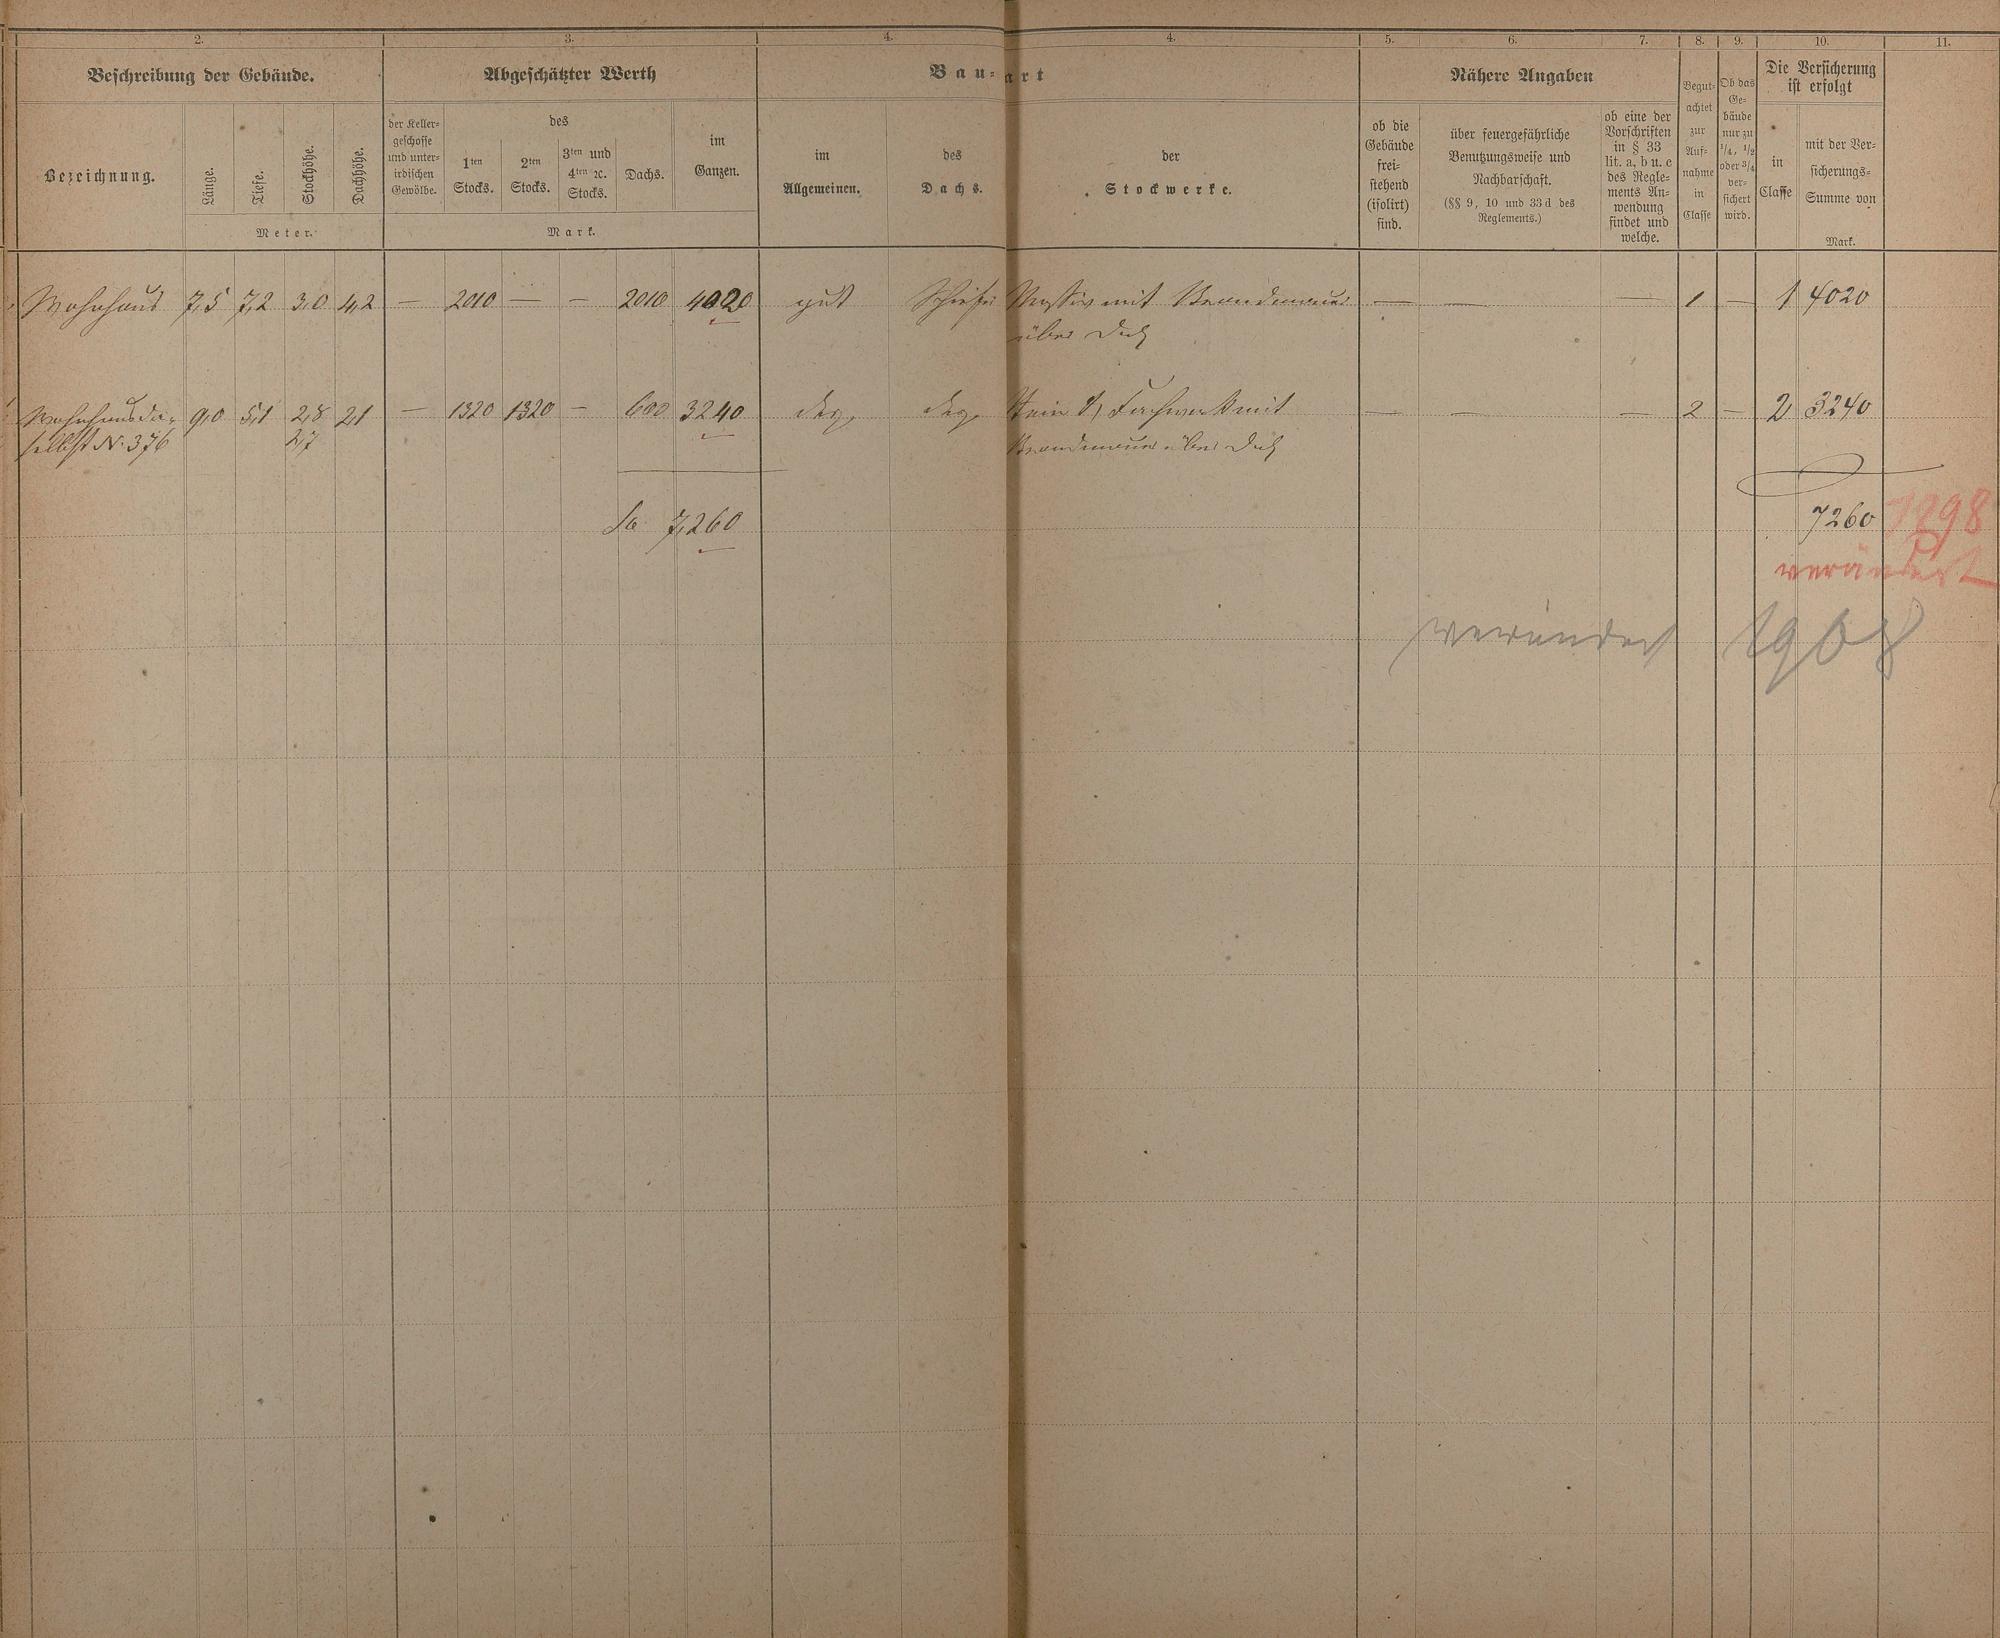 2. 3. 4. 4. 5. 6. 7. 8. 9. 10. 11.
Beschreibung der Gebäude. Abgeschätzter Werth Bau-art Nähere Angaben
Bezeichnung.
Länge.
Tiefe.
Stockhöhe.
Dachhöhe.
Meter.
der Keller-
geschosse
und unter-
irdischen
Gewölbe.
des
1ten
Stocks.
2ten
Stocks.
3ten und
4ten ꝛc.
Stocks.
Dachs.
im
Ganzen.
Mark.
im
Allgemeinen.
des
Dachs.
der
Stockwerke.
ob die
Gebäude
frei-
stehend
(isolirt)
sind.
über feuergefährliche
Benutzungsweise und
Nachbarschaft.
(§§ 9, 10 und 33 d des
Reglements.)
ob eine der
Vorschriften
in § 33
lit. a, b u. c
des Regle-
ments An-
wendung
findet und
welche.
Begut-
achtet
zur
Auf-
nahme
in
Classe
Ob das
Ge-
bäude
nur zu
1/4, 1/2
oder 3/4
ver-
sichert
wird.
Die Versicherung
ist erfolgt
in
Classe
mit der Ver-
sicherungs-
Summe von
Mark.
Wohnhaus 7,5 7,2 3,0 4,2 — 2010 — — 2010 4020 gut Schiefer Massiv mit Brandmauer — — — 1 — 1 4020
über Dach
Wohnhaus da- 9,0 5,1 2,8 2,1 — 1320 1320 — 600 3240 dgl. dgl. Stein & Fachwerk mit — — — 2 — 2 3240
selbst N. 376 2,7 Brandmauer über Dach
Sa 7,260 7260 1898
verändert
verändert 1908